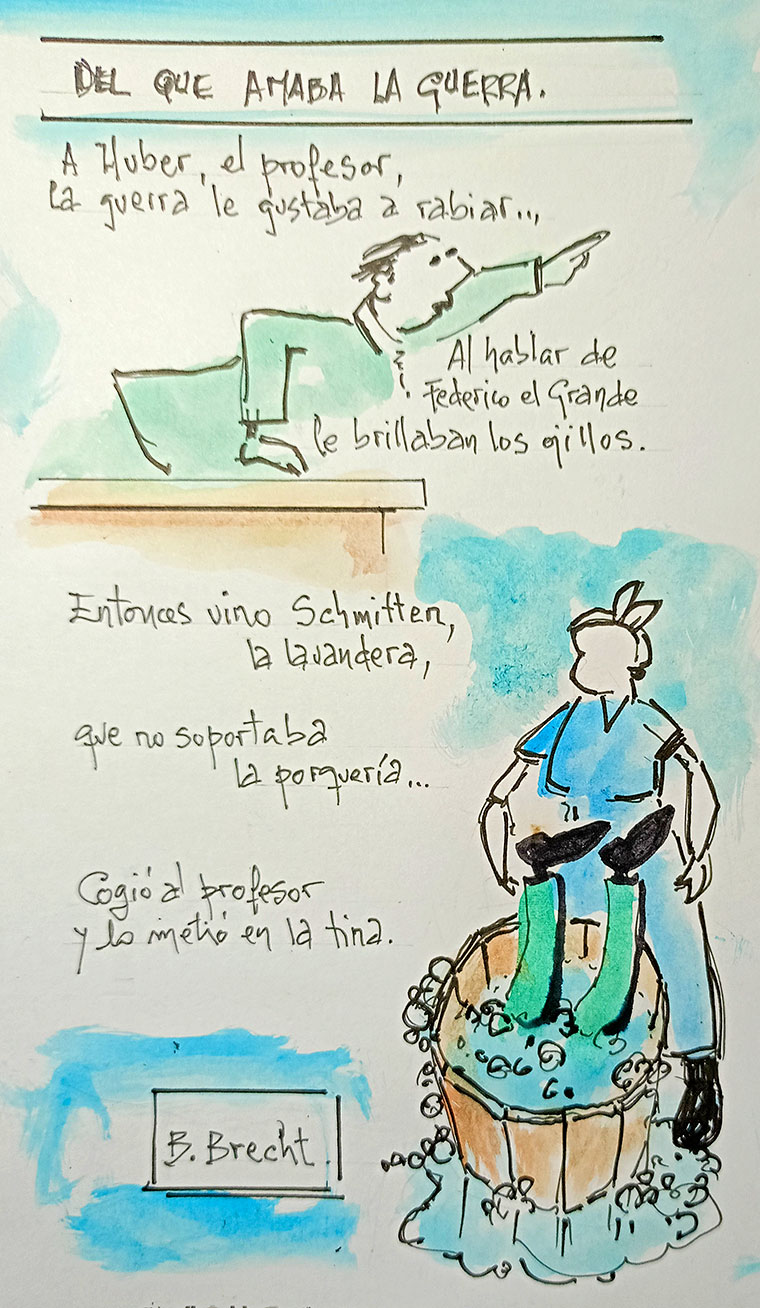 DEL QUE AMABA LA GUERRA.
A Huber, el profesor,
la guerra le gustaba a rabiar...,
Al hablar de
Federico el Grande
le brillaban los ojillos.
Entonces vino Schmitten,
la lavandera,
que no soportaba
la porquería...
Cogió al profesor
y lo metió en la tina.
B. Brecht